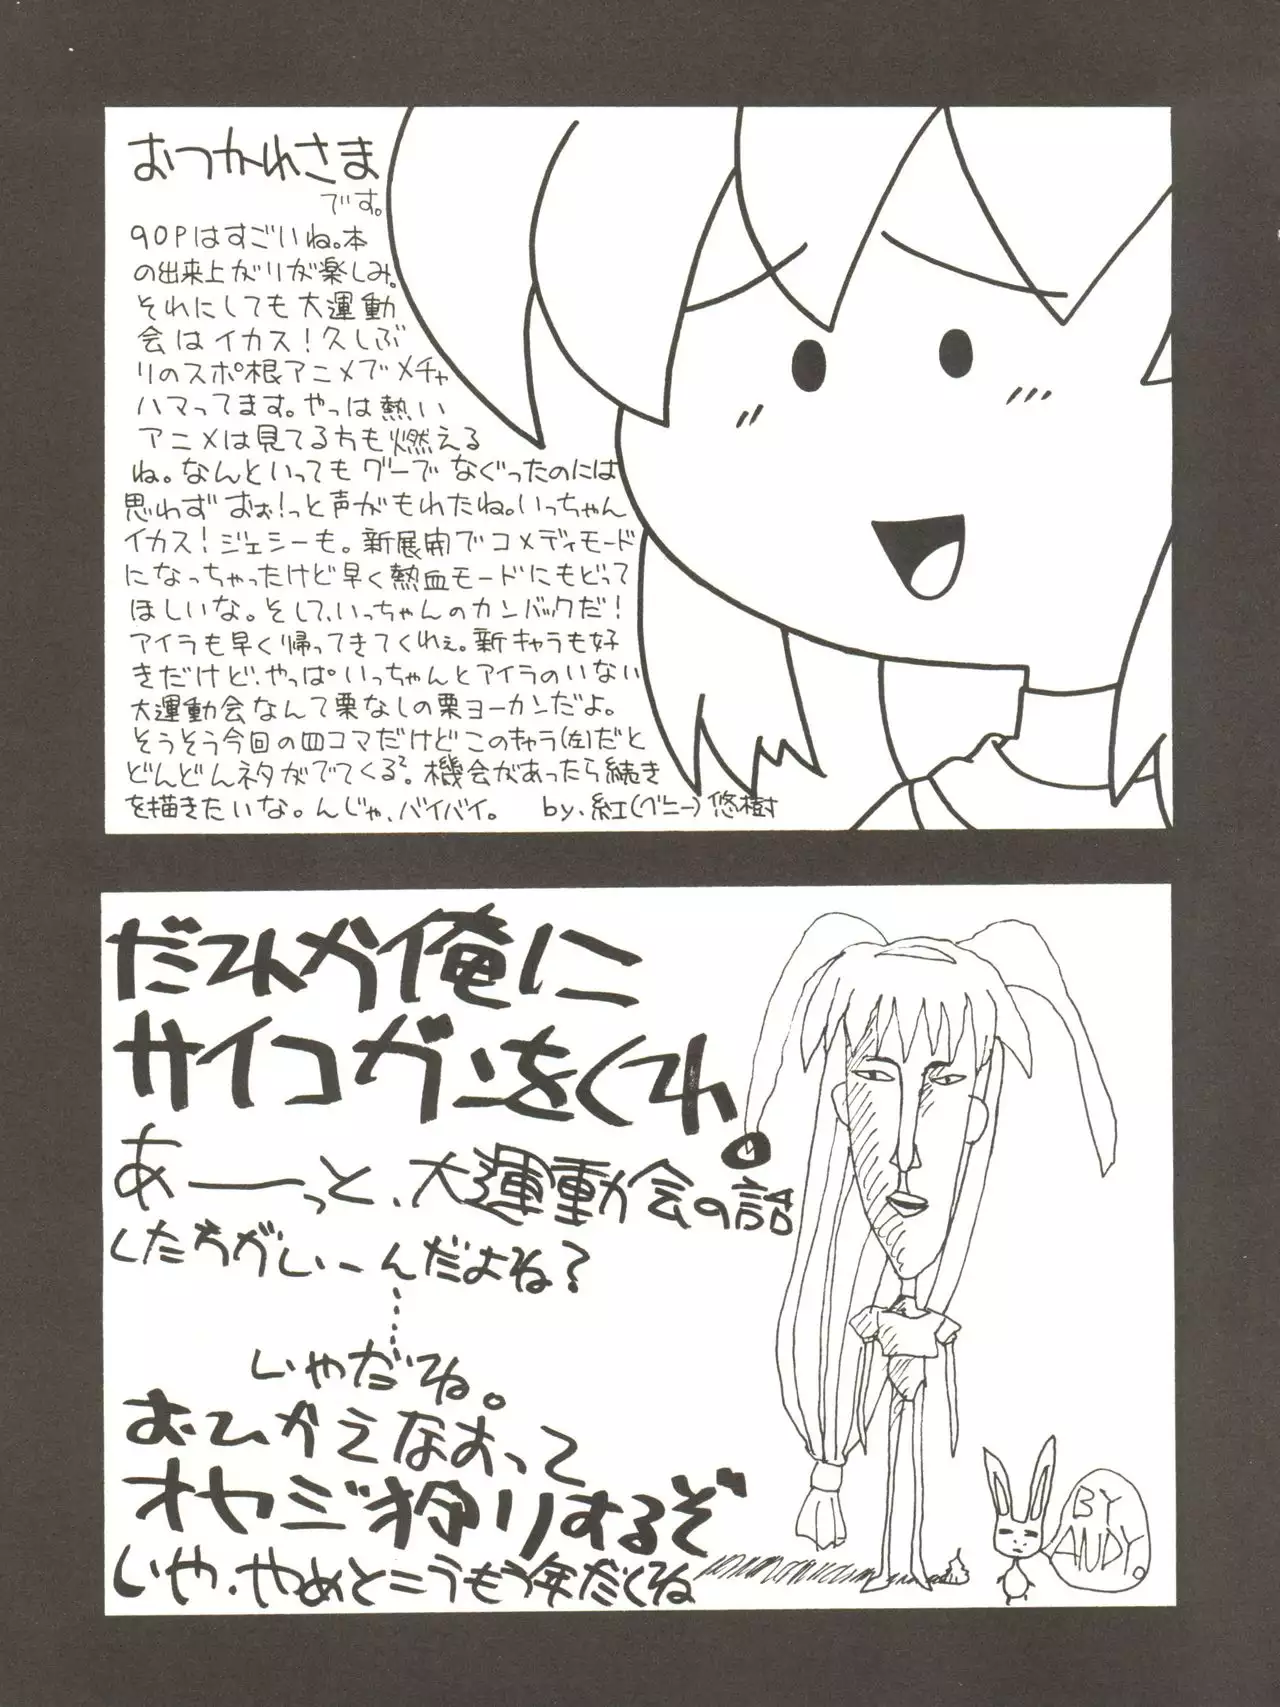 おつかれさま
です。
90Pはすごいね。本
の出来上がりが楽しみ。
それにしても大運動
会はイカス!久しぶ
りのスポ根アニメでメチャ
ハマってます。やっぱ熱い
アニメは見てる方も燃える
ね。なんといってもグーでなぐったのには
思わずおぉ!っと声がもれたね。いっちゃん
イカス!ジェシーも。新展開でコメディモード
になっちゃったけど早く熱血モードにもどって
ほしいな。そして、いっちゃんのカンバックだ!
アイラも早く帰ってきてくれぇ。新キャラも好
きだけど、やっぱいっちゃんとアイラのいない
大運動会なんて栗なしの栗ヨーカンだよ。
そうそう今回の四コマだけどこのキャラ(左)だと
どんどんネタがでてくる²。機会があったら続き
を描きたいな。んじゃ、バイバイ。 by.紅(グニー)悠樹
だれか俺に
サイコガンをくれ。
あーーっと、大運動会の話
したらがしぃーんだよね?
......
じゃだね。
おひかえなすって
オヤジ狩りするぞ
いや、やめとこうもう年だくね
BY
ANDY.